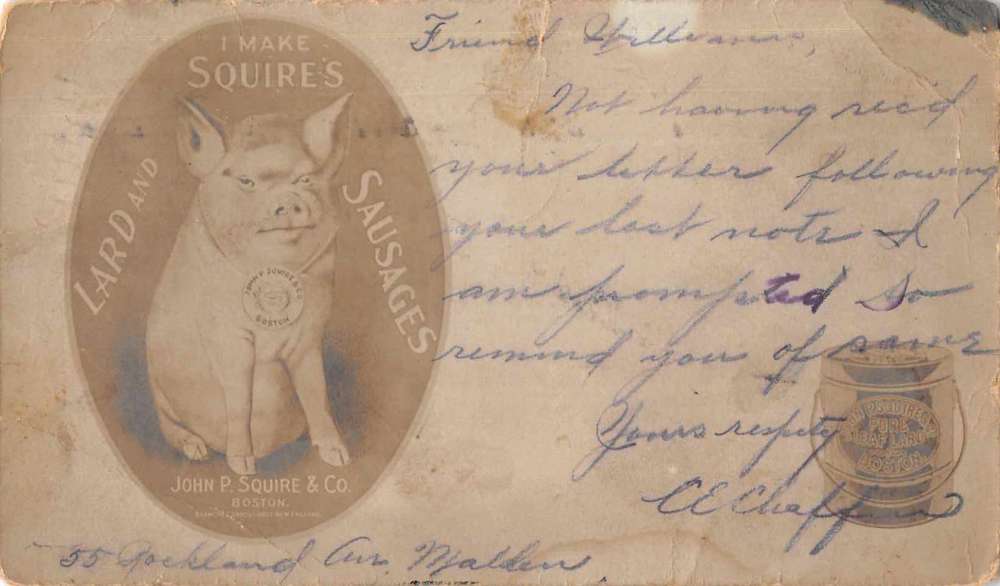 I MAKE
SQUIRE'S
LARD AND
SAUSAGES
JOHN P. SQUIRE & CO.
BOSTON
JOHN P. SQUIRE & CO.
BOSTON.
Friend Williams,
Not having rec'd
your letter following
your last note I
am prompted to
remind you of same
Yours respcty
CE Chaffin
PURE
LEAF LARD
BOSTON
55 Rockland Ave, Malden